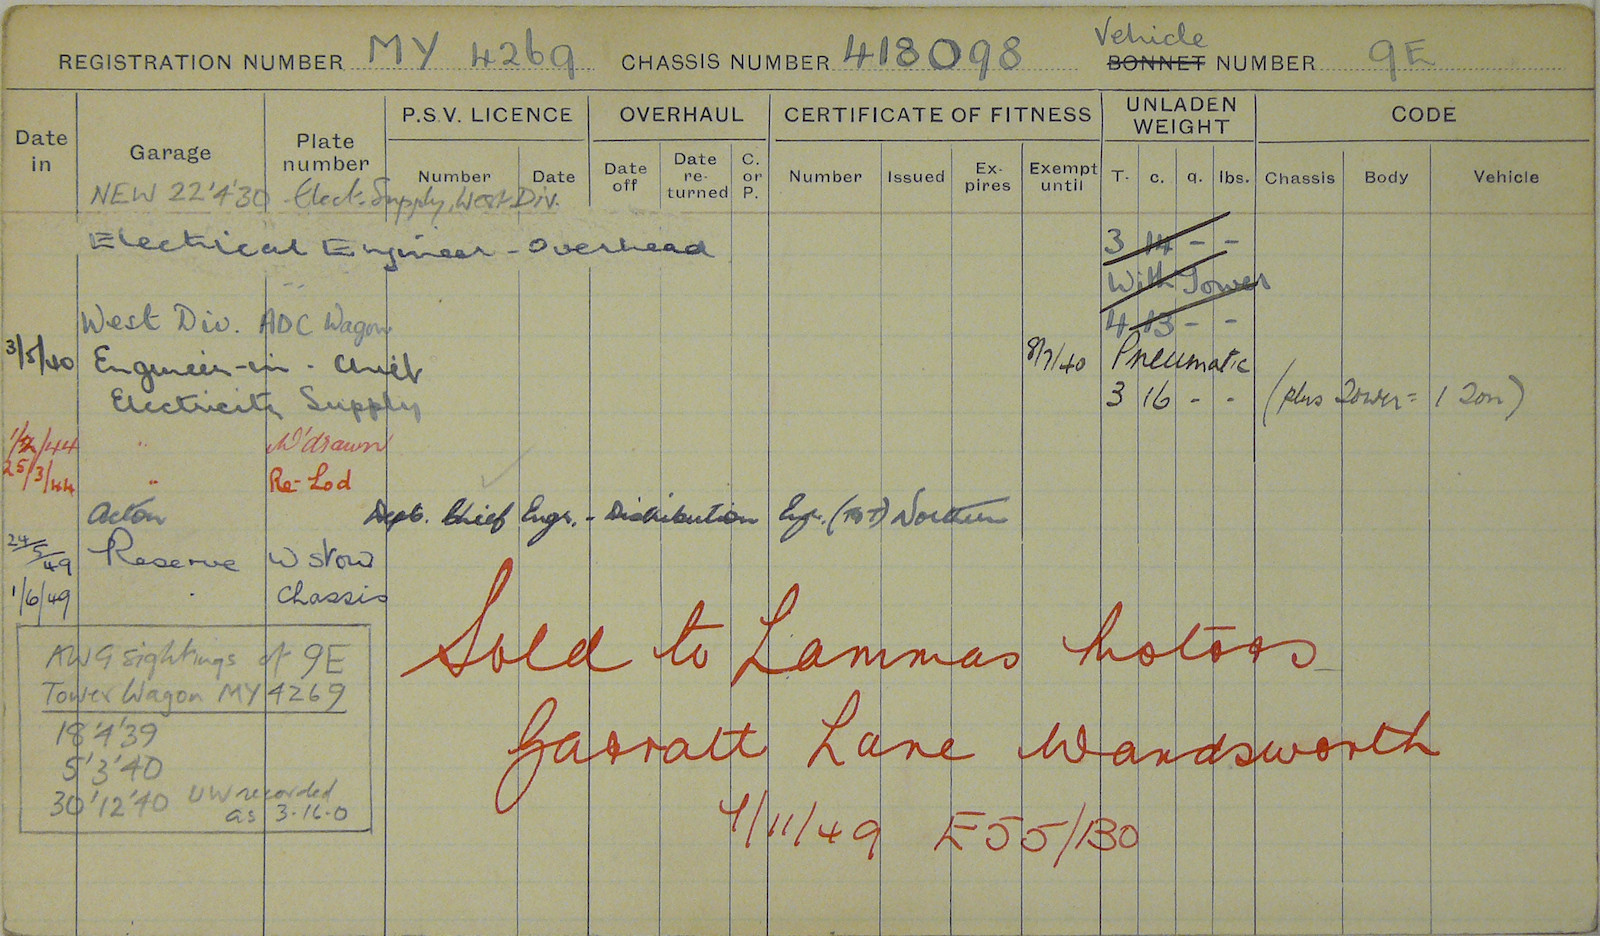 Vehicle
REGISTRATION NUMBER MY 4269 CHASSIS NUMBER 418098 BONNET NUMBER 9E
P.S.V. LICENCE OVERHAUL CERTIFICATE OF FITNESS UNLADEN WEIGHT CODE
Date in Garage Plate number Number Date Date off Date re-turned C. or P. Number Issued Ex-pires Exempt until T. c. q. lbs. Chassis Body Vehicle
NEW 22'4'30 Elect. Supply, West. Div.
Electrical Engineer - Overhead 3 14 - -
With Tower
West Div. ADC Wagon 4 13 - -
3/5/40 Engineer-in-Chief 8/7/40 Pneumatic
Electricity Supply 3 16 - - (plus Tower = 1 Ton)
1/2/44 " W'drawn
25/3/44 " Re-Lod
Acton Dept. Chief Engr. - Distribution Engr. Northern
24/5/49 Reserve W stow
1/6/49 Chassis
Sold to Lammas Motors
Garratt Lane Wandsworth
4/11/49 E55/130
AWG sightings of 9E
Tower Wagon MY 4269
18'4'39
5'3'40
30'12'40 UW recorded
as 3.16.0